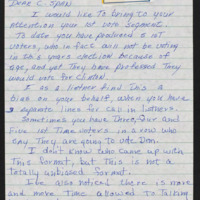 Dear C-Span
I would like to bring to your
attention your 1st vote segment.
To date you have produced 2 1st
voters, who in fact are not voting
in this years election because of
age, and yet they have professed they
would vote for Clinton.
I as a listener find this a
bias on your behalf, when you have
separate lines for call in listeners.
Sometimes you have Three, four and
Five 1st time voters in a row who
say they are going to vote Dem.
I don't know who came up with
this format, but this is not a
totally unbiased format.
I've also noticed there is more
and more time allowed to talking